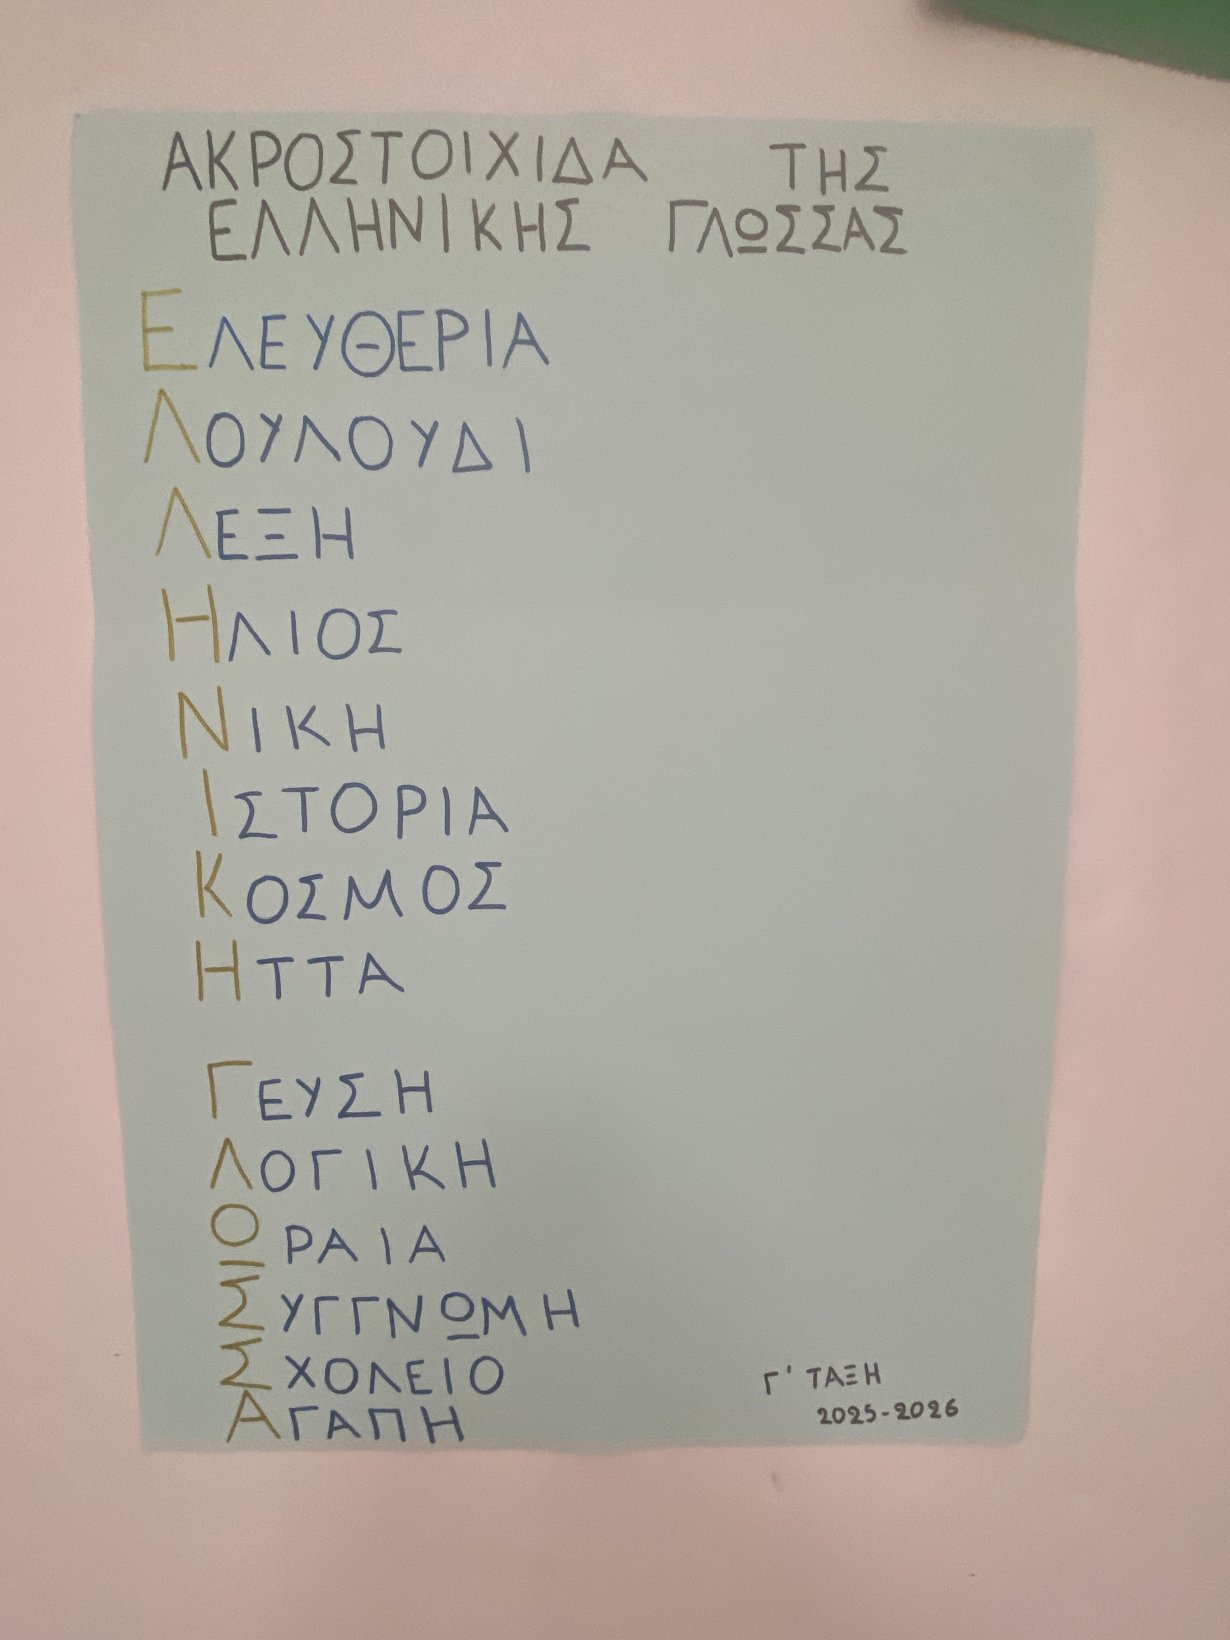 ΑΚΡΟΣΤΟΙΧΙΔΑ ΤΗΣ
ΕΛΛΗΝΙΚΗΣ ΓΛΩΣΣΑΣ
ΕΛΕΥΘΕΡΙΑ
ΛΟΥΛΟΥΔΙ
ΛΕΞΗ
ΗΛΙΟΣ
ΝΙΚΗ
ΙΣΤΟΡΙΑ
ΚΟΣΜΟΣ
ΗΤΤΑ
ΓΕΥΣΗ
ΛΟΓΙΚΗ
ΩΡΑΙΑ
ΣΥΓΓΝΩΜΗ
ΣΧΟΛΕΙΟ
ΑΓΑΠΗ
Γ' ΤΑΞΗ
2025-2026